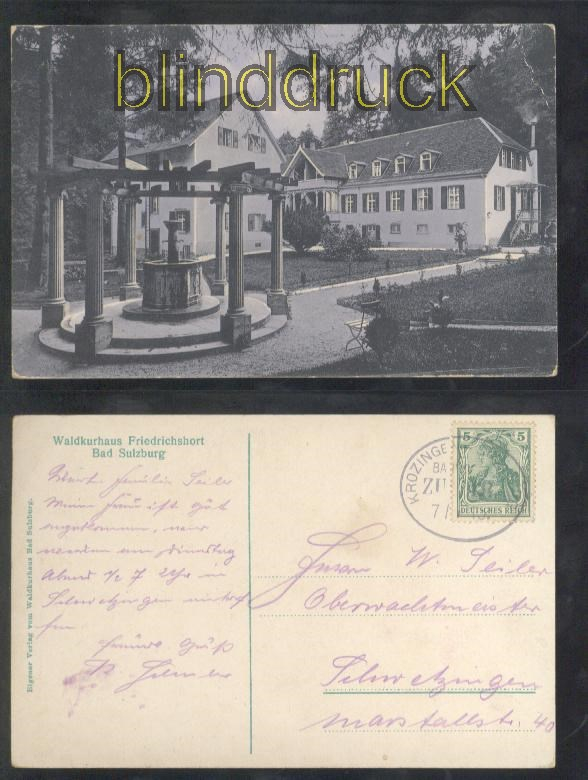 blinddruck
Waldkurhaus Friedrichshort
Bad Sulzburg
Eigener Verlag vom Waldkurhaus Bad Sulzburg.
Werte Familie Seiler
Meine Frau ist gut
angekommen,
werden am Dienstag
Abend ½ 7 Uhr in
Schwetzingen
Gruß
KROZINGE
BA
ZU
7/
5 5
DEUTSCHES REICH
W. Seiler
Oberwachtmeister
Schwetzingen
Marstallstr. 40